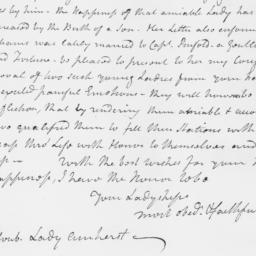 by him - the Happiness of that amiable Lady has
by the Birth of a Son. Her Letter also
was lately married to Capt.
and Fortune. be pleased to present to her my
of two such young Ladies from your
painful Emotions - they will
that by rendering them amiable &
qualified them to fill their Stations with
this Life with Honor to themselves and
With the best wishes for your
Happiness, I have the Honor to be
Your Ladyships
most obed. & faithful
Lady Amherst